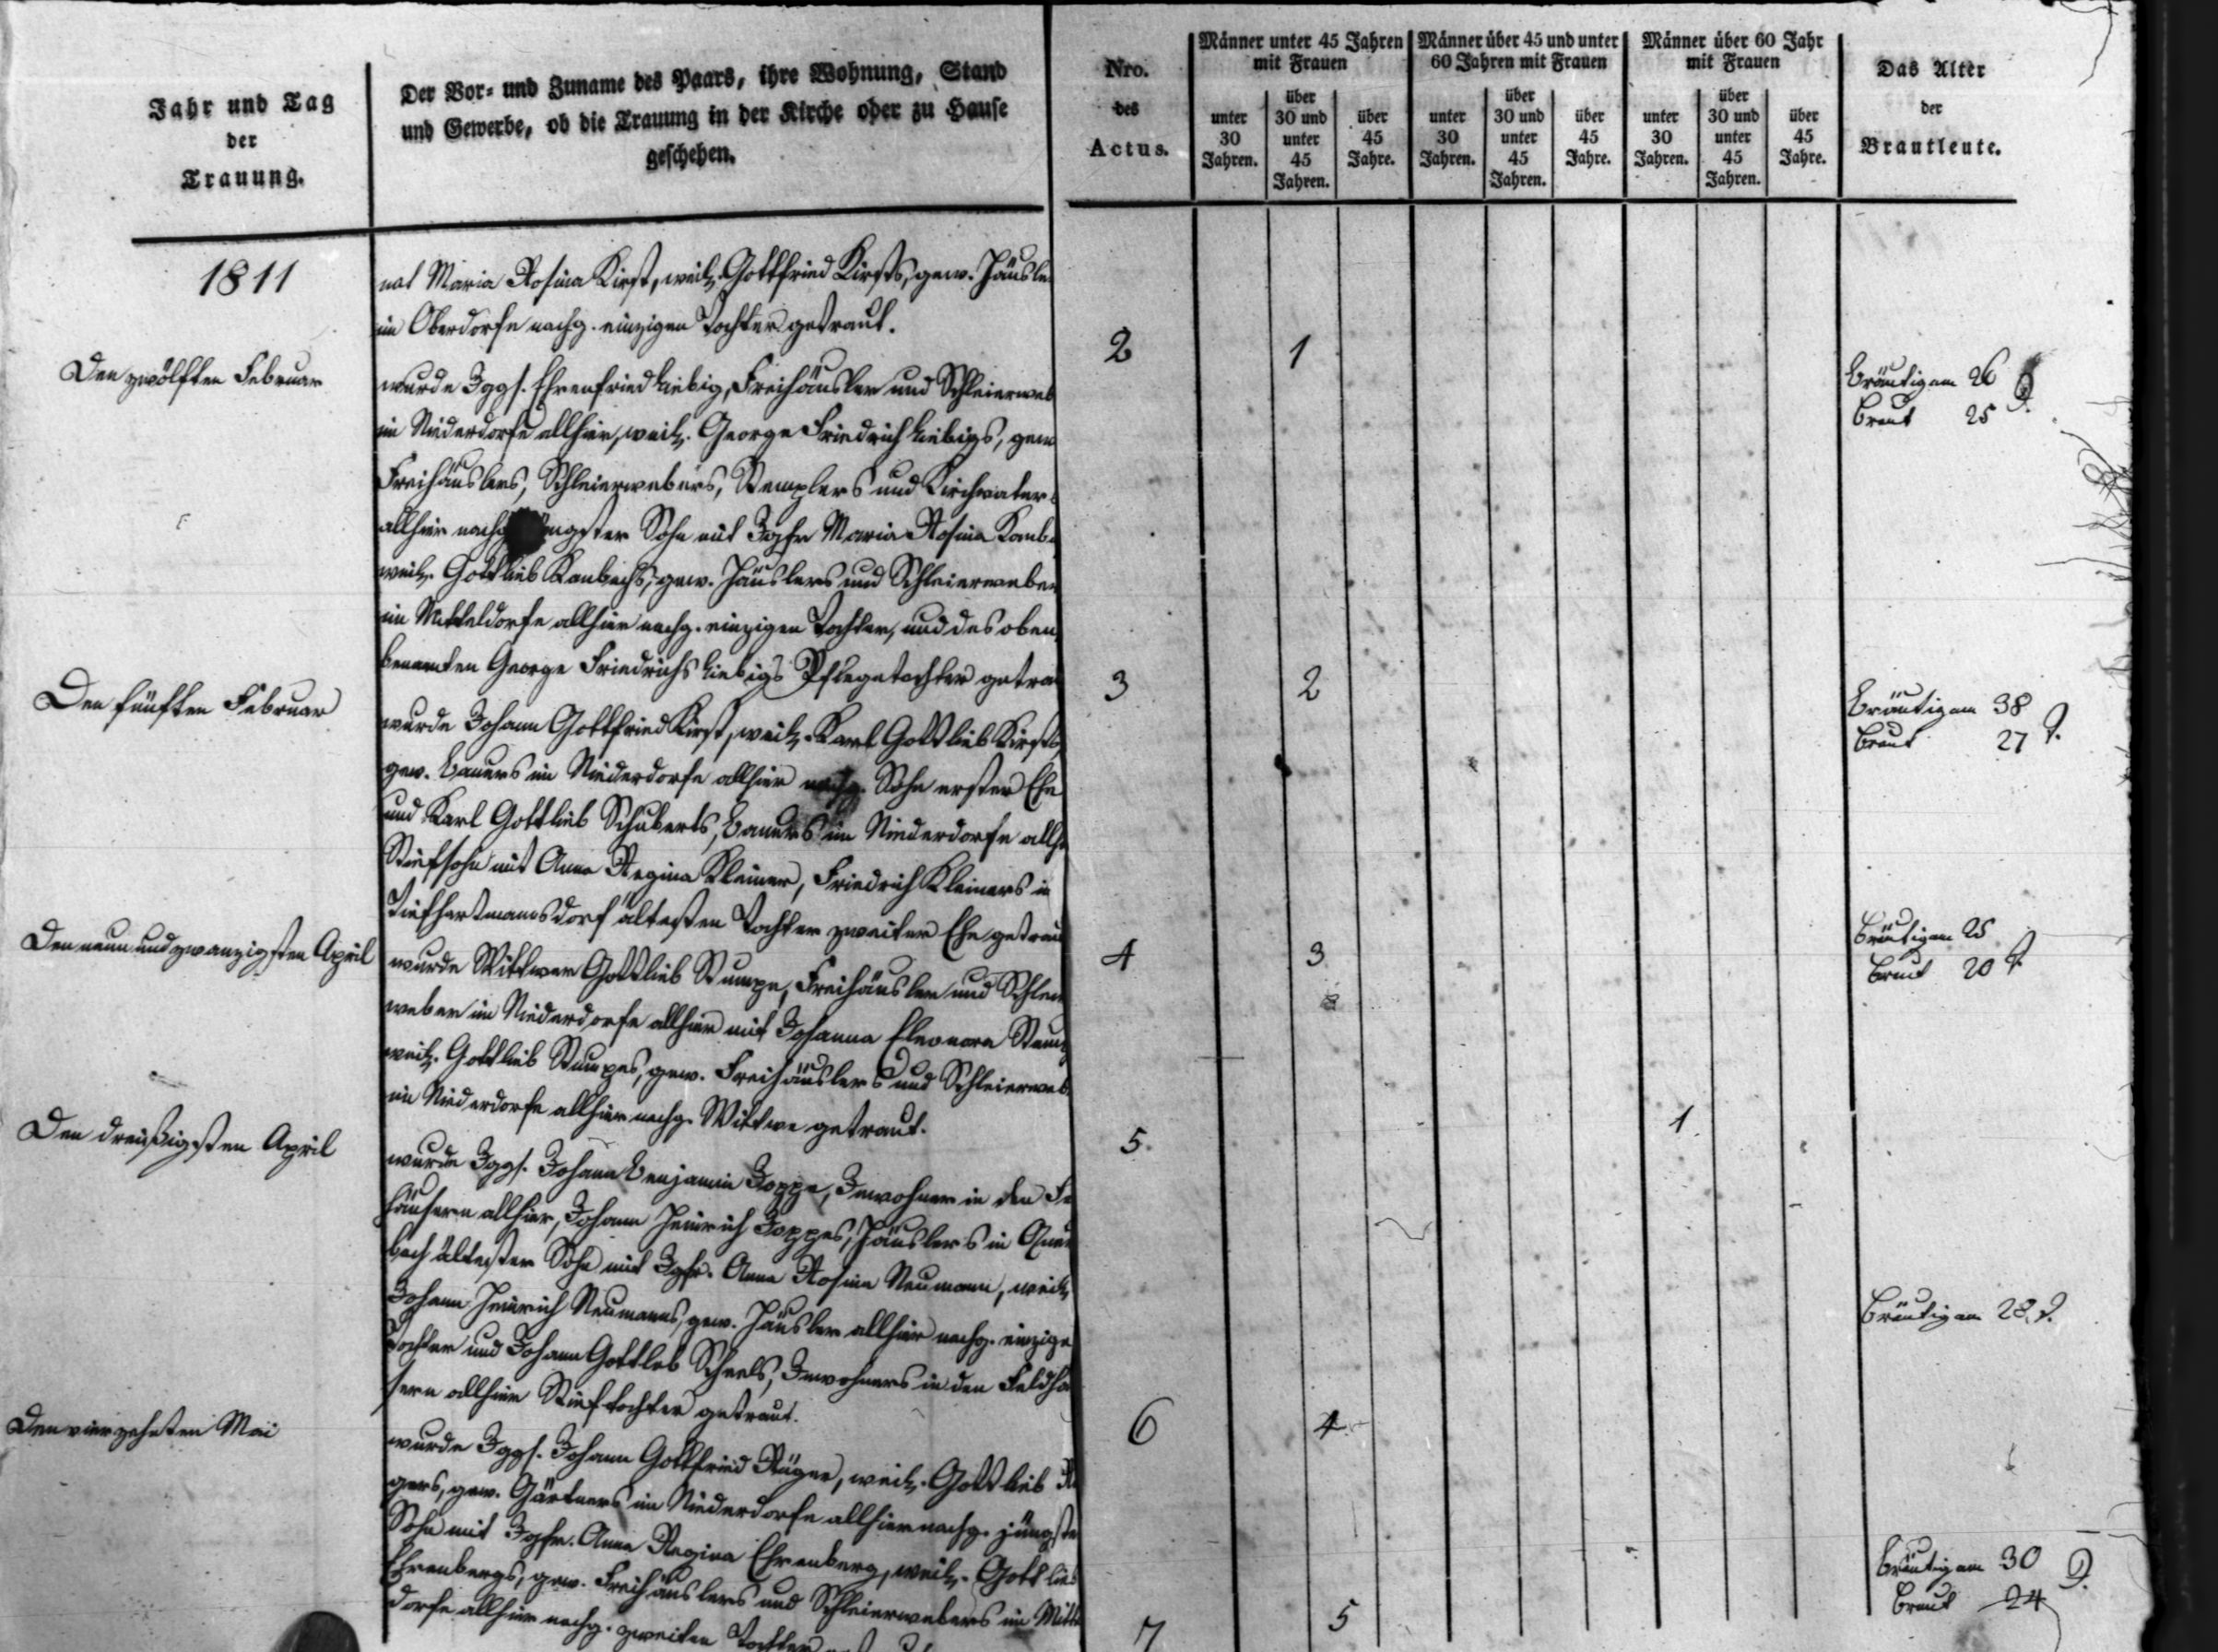 Jahr und Tag
der
Trauung.
Der Vor- und Zuname des Paars, ihre Wohnung, Stand
und Gewerbe, ob die Trauung in der Kirche oder zu Hause
geschehen.
Nro.
des
Actus.
Männer unter 45 Jahren
mit Frauen
unter
30
Jahren.
über
30 und
unter
45
Jahren.
über
45
Jahre.
Männer über 45 und unter
60 Jahren mit Frauen
unter
30
Jahren.
über
30 und
unter
45
Jahren.
über
45
Jahre.
Männer über 60 Jahr
mit Frauen
unter
30
Jahren.
über
30 und
unter
45
Jahren.
über
45
Jahre.
Das Alter
der
Brautleute.
1811
Maria Rosina Kirst, weil. Gottfried Kirsts, gew. Häusle
im Oberdorfe nachg. einzigen Tochter getraut.
Den zwölften Februar
wurde Jggs. Ehrenfried Liebig, Freihäusler und Schleierweb
im Niederdorfe allhier, weil. George Friedrich Liebigs, gew
Freihäuslers, Schleierwebers, Stemplers und Kirchvaters
allhier nachg. jüngster Sohn mit Jgfr Maria Rosina
weil. Gottlieb gew. Häuslers und Schleierweber
im Mitteldorfe allhier nachg. einzigen Tochter, und des oben
benamten George Friedrichs Liebigs Pflegetochter getra
2
1
Bräutigam 26 J.
Braut 25
Den fünften Februar
wurde Johann Gottfried Kirst, weil. Karl Gottlieb Kirsts
gew. Bauers im Niederdorfe allhier nachg. Sohn erster Ehe
und Karl Gottlieb Schuberts, Bauers im Niederdorfe allh
Stiefsohn mit Anna Regina Kleiner, Friedrich Kleiners in
Tiefhartmannsdorf ältesten Tochter zweiter Ehe getrau
3
2
Bräutigam 38
Braut 27 J.
Den neun und zwanzigsten April
wurde Wittwer Gottlieb Stumpe, Freihäusler und Schlei
weber im Niederdorfe allhier mit Johanna Eleonora Stum
weil. Gottlieb Stumpes, gew. Freihäuslers und Schleierweb
im Niederdorfe allhier nachg. Wittwe getraut.
4
3
Bräutigam 25
Braut 20 J.
Den dreißigsten April
wurde Jggs. Johann Benjamin Hoppe, Inwohner in den Fe
häusern allhier, Johann Heinrich Hoppes, Häuslers in Quer
bach ältester Sohn mit Jgfr. Anna Rosina Neumann, weil.
Johann Heinrich Neumanns, gew. Häusler allhier nachg. einzige
Tochter und Johann Gottlob Scheels, Inwohners in den Feldhä
sern allhier Stieftochter getraut.
5.
1.
Bräutigam 28. J.
Den vierzehnten Mai
wurde Jggs. Johann Gottfried Rüger, weil. Gottlieb Rü
gers, gew. Gärtners im Niederdorfe allhier nachg. jüngste
Sohn mit Jgfr. Anna Regina Ehrenberg, weil. Gottlieb
Ehrenbergs, gew. Freihäuslers und Schleierwebers im Mitt
dorfe allhier nachg. zweiten Tochter
6
4
7
5
Bräutigam 30 J.
Braut 24